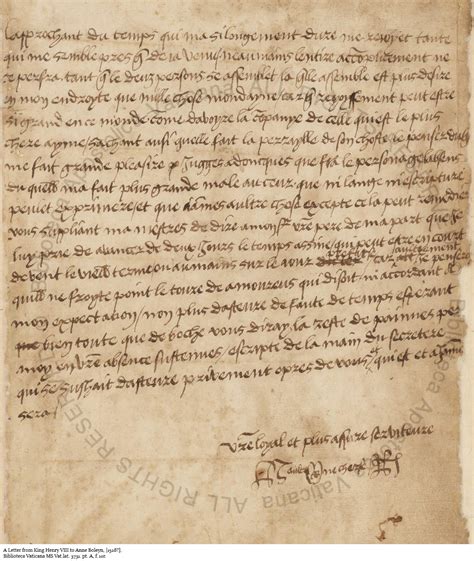 lapprochant du temps qui ma si longement dure me reioyst tante
qui me semble pres que deia venu neaumains lentire accomplidement ne
ce perfra tant que le deuz persons se assemblet la quelle assemble est plus desire
en mon endroyte que nulle chose mondaine car que reioysement peut estre
si grand en ce monde come davoyre la companye de celle qui est le plus
chere ayme sachant ausi quelle fait la perraylle de son choste le penser du quel
me fait grande pleasire
du quell ma fait plus grande male au ceur que ni lange ni escripture
peulet exprimere et que iames aultre chose excepte cela peut remedier
vous supliant ma mestres de dire a monsr vre pere de ma part que ie
luy prie de avancer de deuz hours le temps assine qui peut estre en court
devent le vielle terme ou aumains sur le iour car aut ie penseray
quill ne froyte point le toure de amoureus qui disoit ni accordant a
mon expectation non plus dasteure de faute de temps esperant
bien toute que de boche vous diray la reste de painnes par
moy en vre absence sustennes escripte de la main du secretere
qui se sushait dasteure privement opres de vous et qui est et a iames
sera
vre loyal et plus assure serviteure
H autre ne cherse R
A Letter from King Henry VIII to Anne Boleyn, [1528?].
Biblioteca Vaticana MS Vat.lat. 3731. pt. A, f.
Vaticana ALL RIGHTS RESERVED